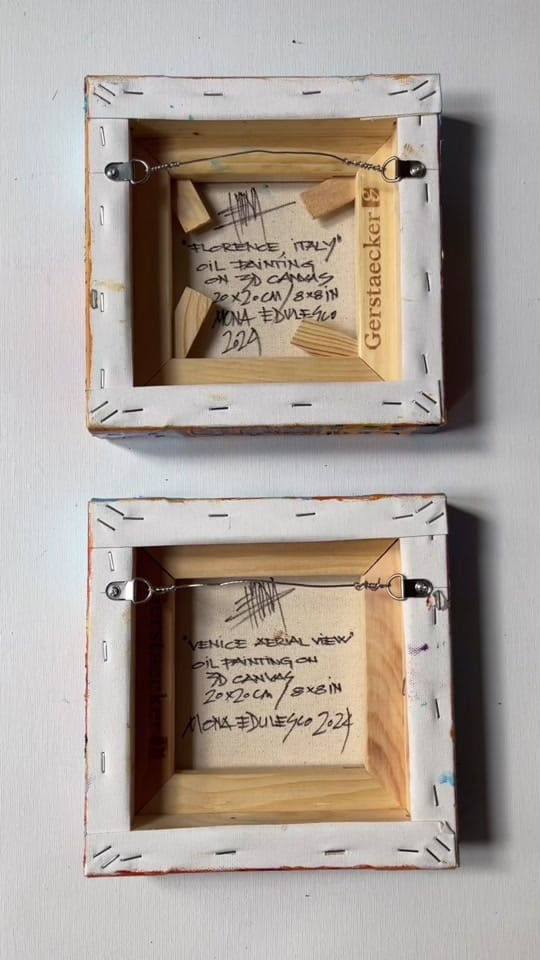 "FLORENCE, ITALY"
OIL PAINTING
ON 3D CANVAS
20x20cm/8x8IN
MONA EDULESCO
2024
Gerstaecker
"VENICE AERIAL VIEW"
OIL PAINTING ON
3D CANVAS
20x20cm/8x8IN
MONA EDULESCO 2024
Gerstaecker